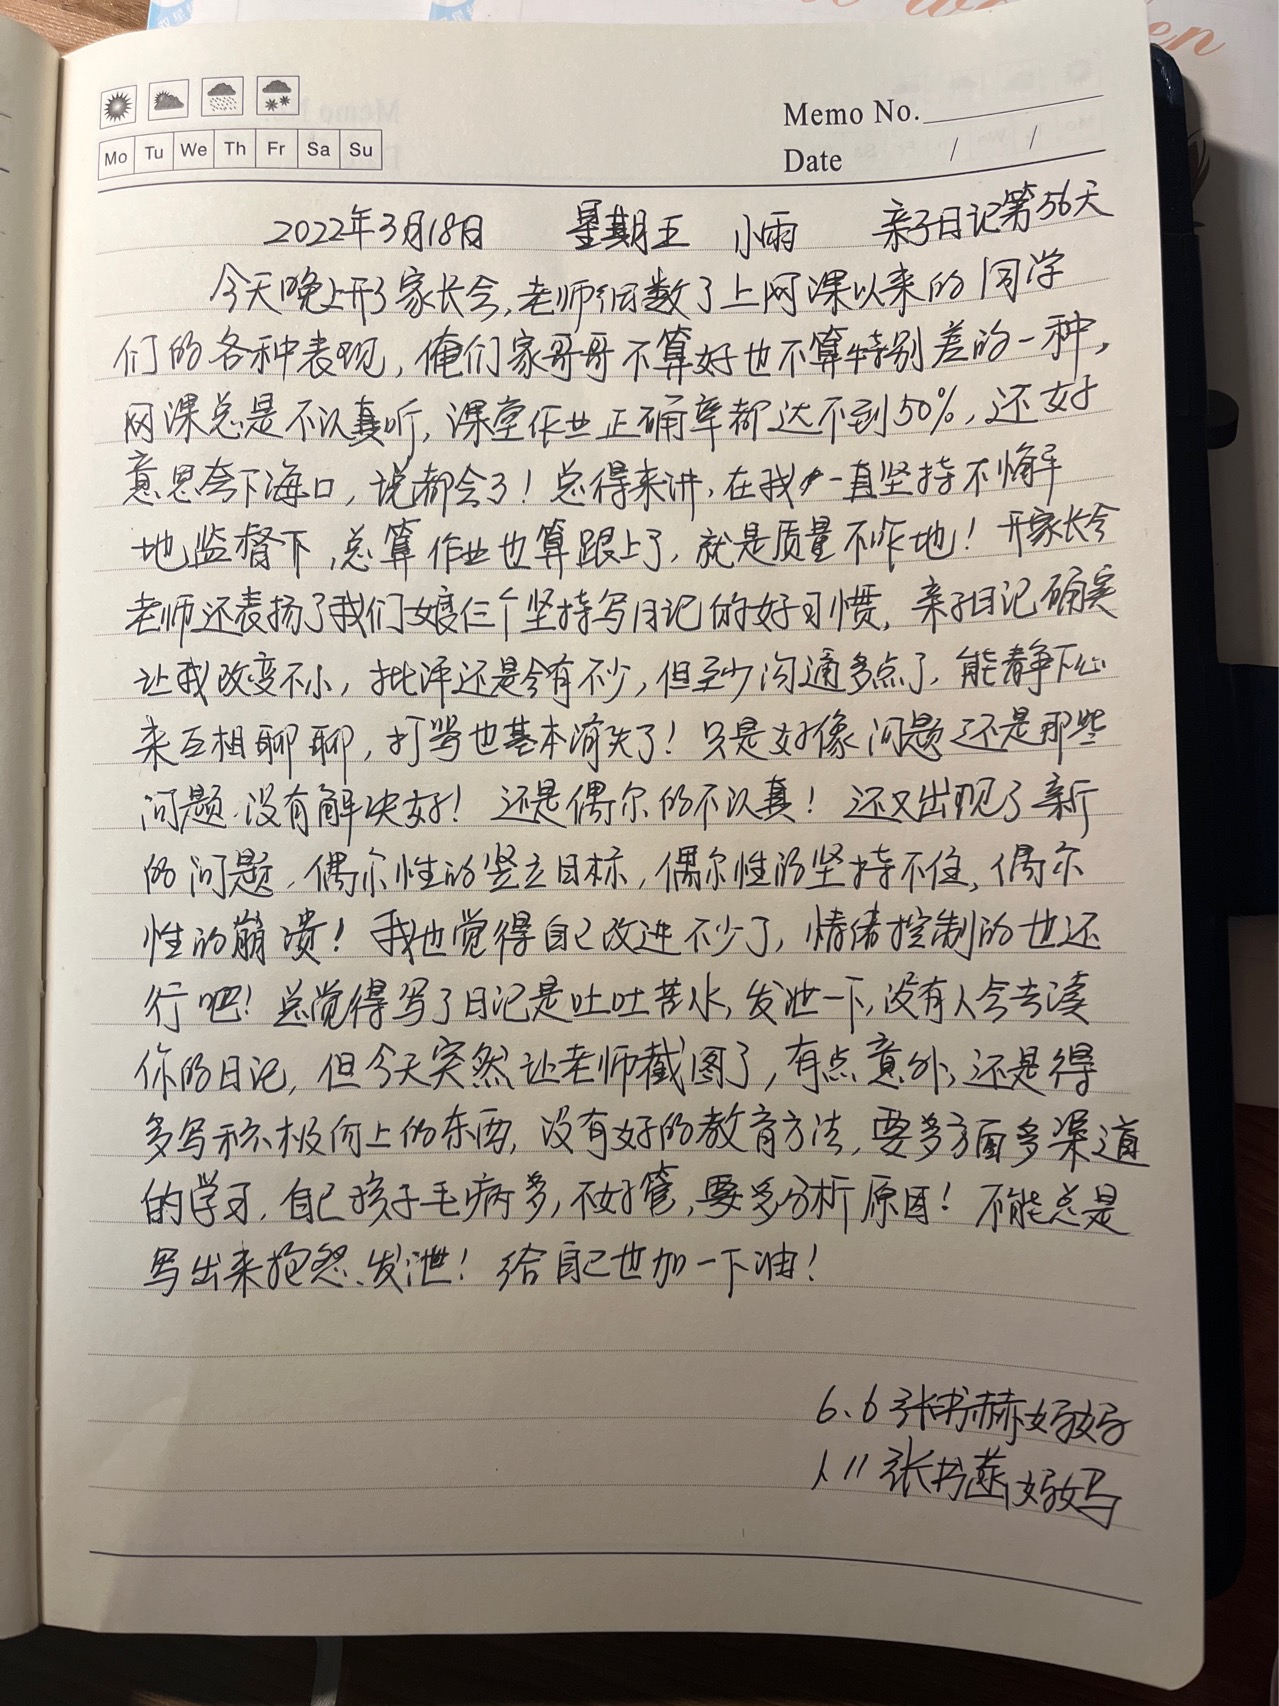 Memo No.
Mo Tu We Th Fr Sa Su
Date / /
2022年3月18日 星期五 小雨 亲子日记第56天
今天晚上开了家长会,老师细数了上网课以来的同学
们的各种表现,俺们家哥哥不算好也不算特别差的一种,
网课总是不认真听,课堂作业正确率都达不到50%,还好
意思夸下海口,说都会了!总得来讲,在我一直坚持不懈
地监督下,总算作业也算跟上了,就是质量不咋地!开家长会
老师还表扬了我们娘仨个坚持写日记的好习惯,亲子日记确实
让我改变不小,批评还是会有不少,但至少沟通多点了,能静下心
来互相聊聊,打骂也基本消失了!只是好像问题还是那些
问题,没有解决好!还是偶尔的不认真!还又出现了新
的问题,偶尔性的竖立目标,偶尔性的坚持不住,偶尔
性的崩溃!我也觉得自己改进不少了,情绪控制的也还
行吧!总觉得写了日记是吐吐苦水,发泄一下,没有人会去读
你的日记,但今天突然让老师截图了,有点意外,还是得
多写积极向上的东西,没有好的教育方法,要多方面多渠道
的学习,自己孩子毛病多,不好管,要多分析原因!不能总是
写出来抱怨、发泄!给自己也加一下油!
6.6张书赫妈妈
1.11张书燕妈妈